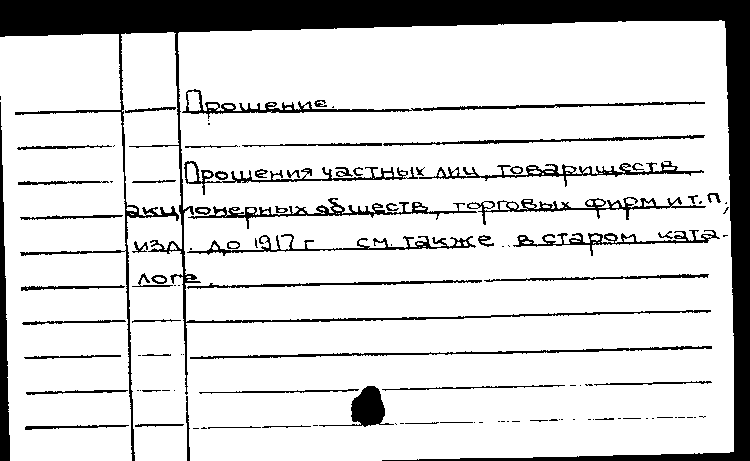 Прошение.
Прошения частных лиц, товариществ
акционерных обществ, торговых фирм и т.п,
изд. до 1917 г см. также в старом ката-
логе.